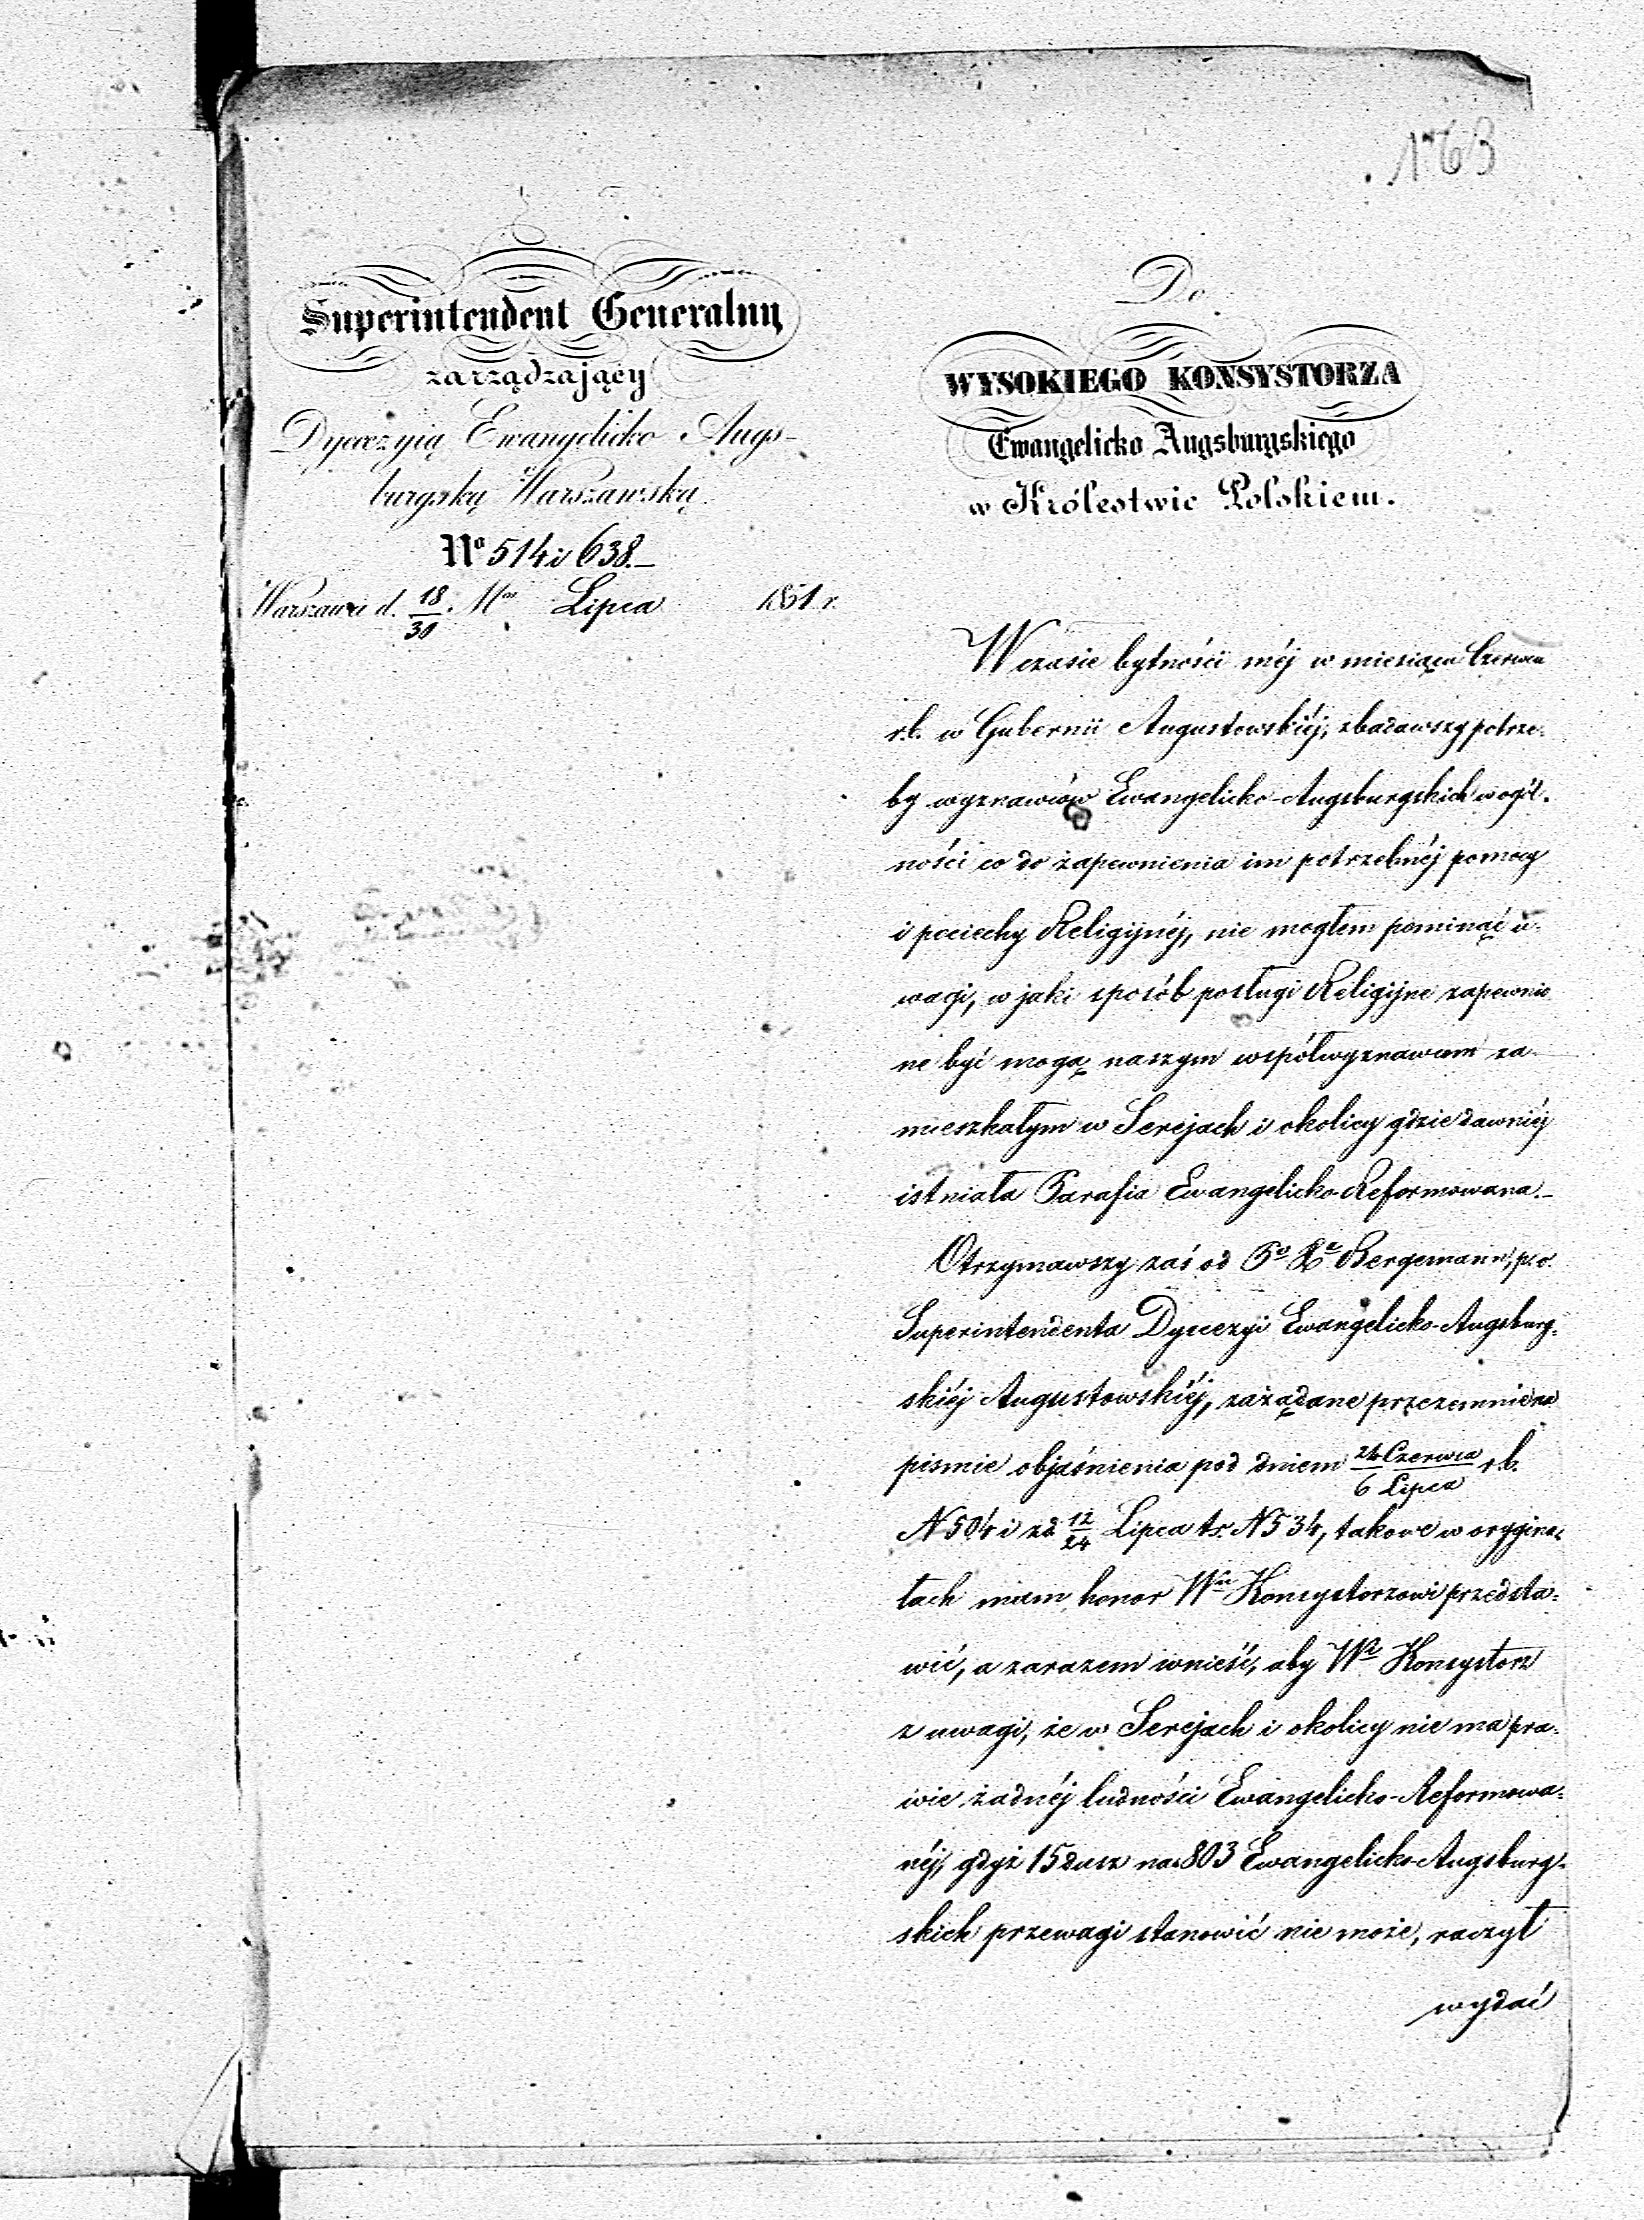 163
Superintendent Generalny
zarządzający
Dyecezyią Ewangelicko Augs-
burgską Warszawską.
No 514 i 638.—
Warszawa d. 18/30. Mca Lipca 1861 r.
Do
WYSOKIEGO KONSYSTORZA
Ewangelicko Augsburgskiego
w Królestwie Polskiem.
W czasie bytności méj w miesiącu Czerwcu
r.b. w Gubernii Augustowskiéj, zbadawszy potrze-
by wyznawców Ewangelicko-Augsburgskich w ogól-
ności co do zapewnienia im potrzebnéj pomocy
i pociechy Religijnéj, nie mogłem pominąć u-
wagi, w jaki sposób posługi Religijne zapewnio
ne być mogą naszym współwyznawcom za-
mieszkałym w Serejach i okolicy gdzie dawniéj
istniała Parafia Ewangelicko-Reformowana.—
Otrzymawszy zaś od Bergemann, p.o.
Superintendenta Dyecezyi Ewangelicko-Augsburg-
skiéj Augustowskiéj, zażądane przezemnie na
pismie objaśnienia pod dniem 24 Czerwca/6 Lipca r.b.
N 504 i z d 12/24 Lipca t.r. N 534, takowe w orygina-
łach mam honor Wmu Konsystorzowi przedsta-
wić, a zarazem wnieść, aby Wki Konsystorz
z uwagi, że w Serejach i okolicy nie ma pra-
wie żadnéj ludności Ewangelicko-Reformowa-
néj, gdyż 15 dusz na 803 Ewangelicko-Augsburg-
skich przewagi stanowić nie może, raczył
wydać